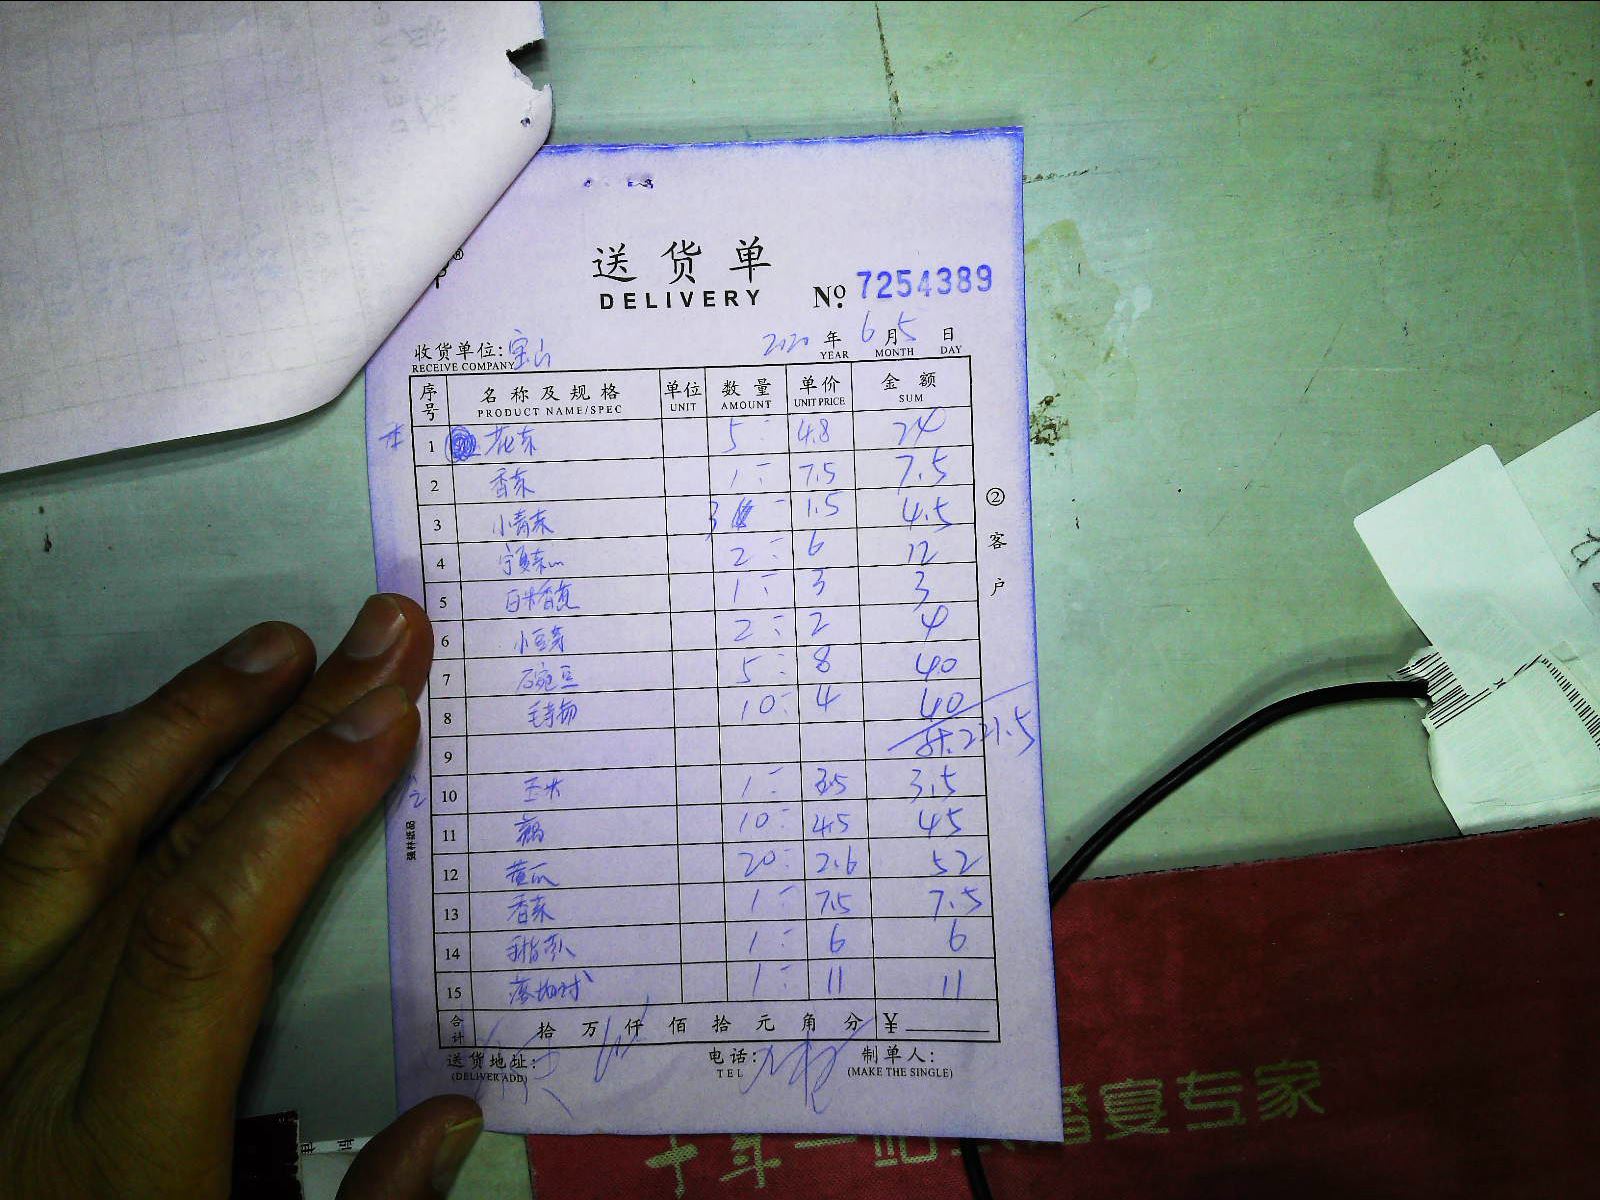 送货单
DELIVERY
No. 7254389
收货单位: 宝山 2020 年 6 月 5 日
RECEIVE COMPANY YEAR MONTH DAY
序号 名称及规格 单位 数量 单价 金额
PRODUCT NAME/SPEC UNIT AMOUNT UNIT PRICE SUM
1 花菜 5 4.8 24
2 香菜 1 7.5 7.5
3 小青菜 3 1.5 4.5
4 宁夏菜心 2 6 12
5 1 3 3
6 小豆芽 2 2 4
7 豌豆 5 8 40
8 10 4 40
9 221.5
10 玉米 1 3.5 3.5
11 藕 10 4.5 45
12 黄瓜 20 2.6 52
13 香菜 1 7.5 7.5
14 1 6 6
15 1 11 11
合计 拾 万 仟 佰 拾 元 角 分 ¥
送货地址: 电话: 制单人:
(DELIVER ADD) TEL (MAKE THE SINGLE)
② 客户
强林纸品
十年一站 婚宴专家